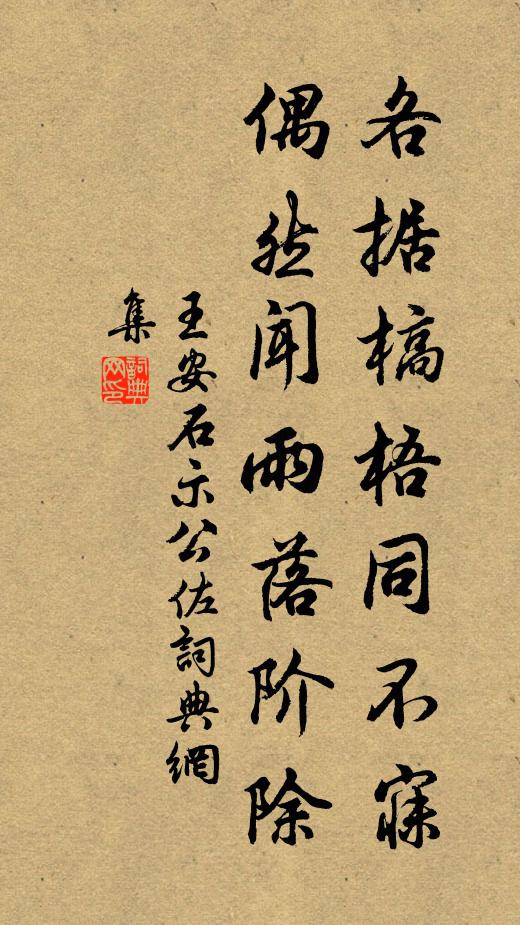 各据槁梧同不寐
偶然闻雨落阶除
王安石示公佐詞典網
集
詞典网印